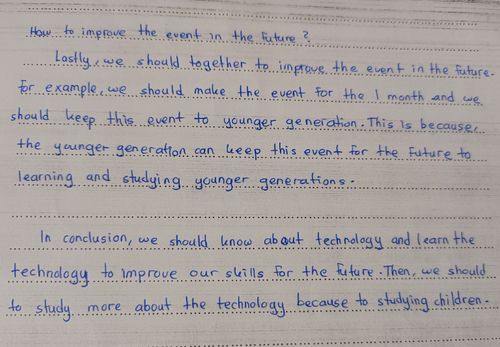 How to improve the event in the future?
Lastly, we should together to improve the event in the future.
For example, we should make the event for the 1 month and we
should keep this event to younger generation. This is because,
the younger generation can keep this event for the future to
learning and studying younger generations.
In conclusion, we should know about technology and learn the
technology to improve our skills for the future. Then, we should
to study more about the technology because to studying children.